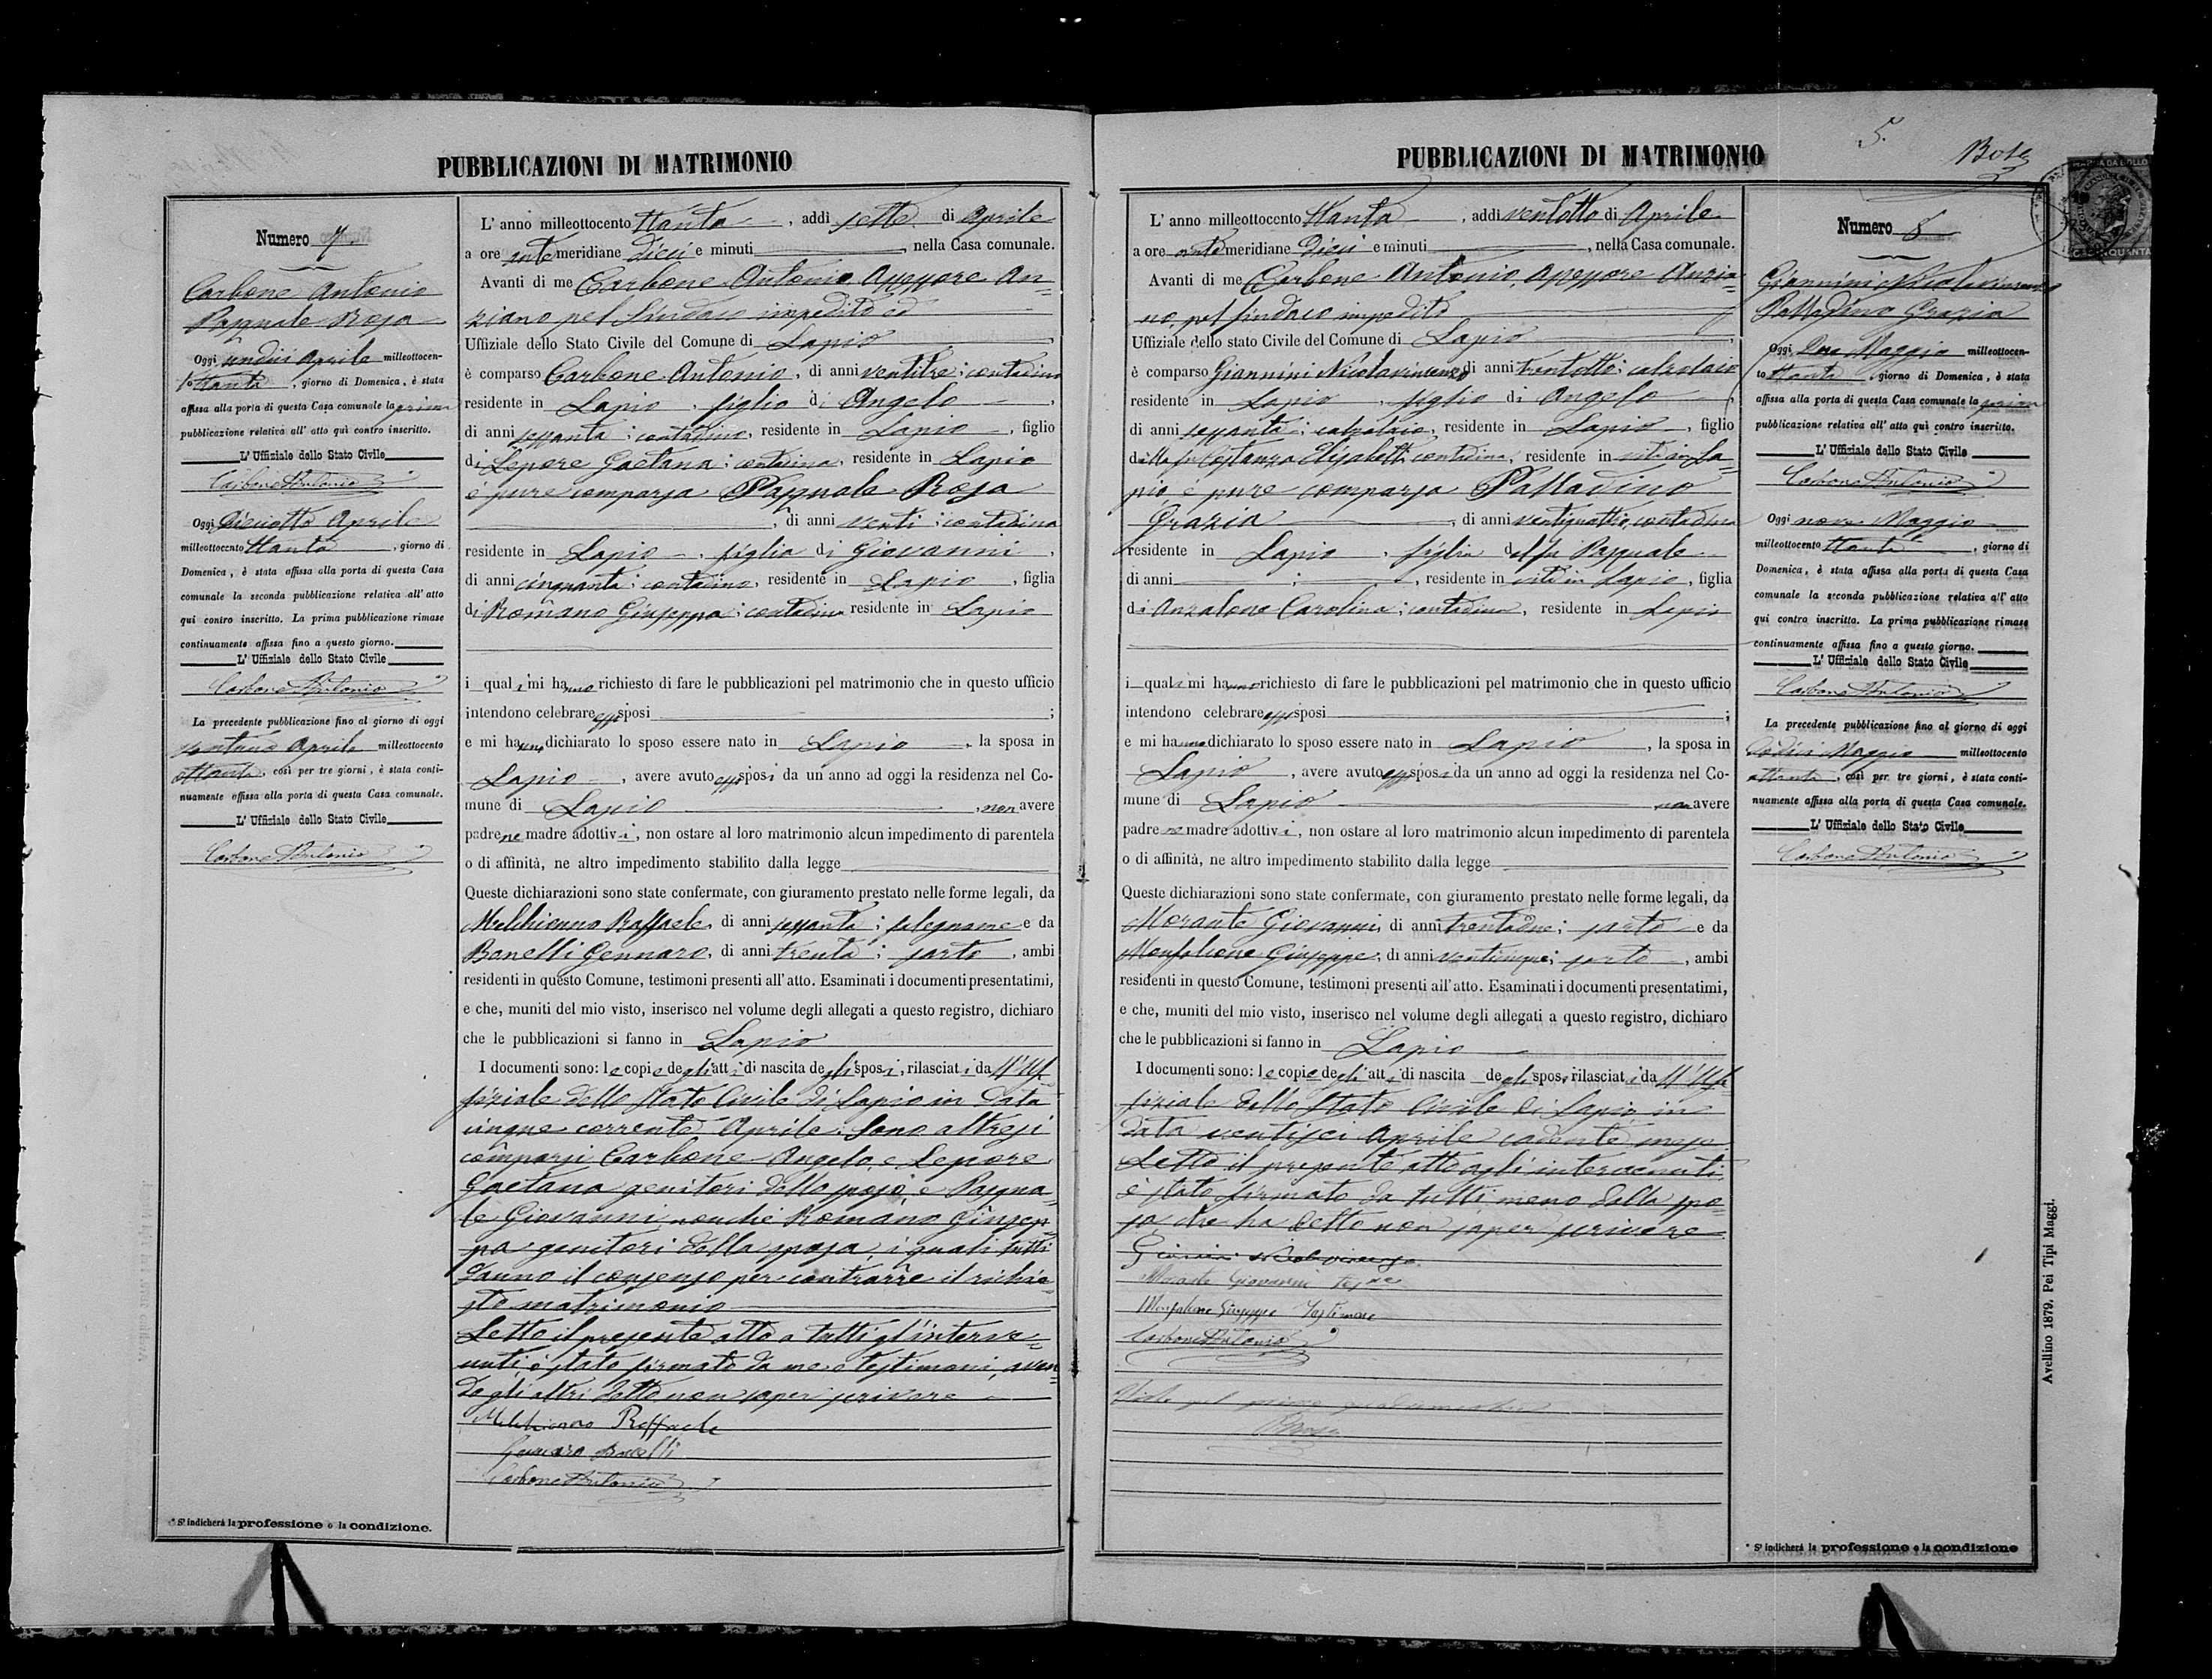 PUBBLICAZIONI DI MATRIMONIO
Numero 7
Carbone Antonio
Pasquale Rosa
Oggi undici Aprile milleottocen-
to ttanta, giorno di Domenica, è stata
affissa alla porta di questa Casa comunale la prima
pubblicazione relativa all' atto quì contro inscritto.
L' Uffiziale dello Stato Civile
Carbone Antonio
Oggi Dieciotto Aprile
milleottocento ttanta, giorno di
Domenica, è stata affissa alla porta di questa Casa
comunale la seconda pubblicazione relativa all' atto
qui contro inscritto. La prima pubblicazione rimase
continuamente affissa fino a questo giorno.
L' Uffiziale dello Stato Civile
Carbone Antonio
La precedente pubblicazione fino al giorno di oggi
ventuno Aprile milleottocento
ottanta, così per tre giorni, è stata conti-
nuamente affissa alla porta di questa Casa comunale.
L' Uffiziale dello Stato Civile
Carbone Antonio
* S' indicherà la professione o la condizione.
L' anno milleottocento ttanta, addì sette di Aprile
a ore ante meridiane dieci e minuti , nella Casa comunale.
Avanti di me Carbone Antonio, Assessore An=
ziano pel Sindaco impedito ed
Uffiziale dello Stato Civile del Comune di Lapio
è comparso Carbone Antonio, di anni ventitre; contadino
residente in Lapio, figlio di Angelo,
di anni sessanta; contadino, residente in Lapio, figlio
di Lepore Gaetana; contadina, residente in Lapio
è pure comparsa Pasquale Rosa
, di anni venti; contadina
residente in Lapio, figlia di Giovanni,
di anni cinquanta; contadino, residente in Lapio, figlia
di Romano Giuseppa; contadina residente in Lapio
i quali mi hanno richiesto di fare le pubblicazioni pel matrimonio che in questo ufficio
intendono celebrare essi sposi ;
e mi hanno dichiarato lo sposo essere nato in Lapio, la sposa in
Lapio, avere avuto essi sposi da un anno ad oggi la residenza nel Co-
mune di Lapio , non avere
padre ne madre adottivi, non ostare al loro matrimonio alcun impedimento di parentela
o di affinità, ne altro impedimento stabilito dalla legge
Queste dichiarazioni sono state confermate, con giuramento prestato nelle forme legali, da
Melchionno Raffaele, di anni sessanta; falegname e da
Bonelli Gennaro, di anni trenta; sarto, ambi
residenti in questo Comune, testimoni presenti all' atto. Esaminati i documenti presentatimi,
e che, muniti del mio visto, inserisco nel volume degli allegati a questo registro, dichiaro
che le pubblicazioni si fanno in Lapio
I documenti sono: le copie degli atti di nascita degli sposi, rilasciati da ll'Uf
fiziale dello Stato Civile di Lapio in data
cinque corrente Aprile. Sono altresì
comparsi Carbone Angelo, e Lepore
Gaetana genitori dello sposo, e Pasqua=
le Giovanni, nonchè Romano Giusep
pa genitori della sposa, i quali tutti
danno il consenso per contrarre il richie
sto matrimonio
Letto il presente atto a tutti gl'interve=
nuti, è stato firmato da me e testimoni, aven
do gli altri detto non saper scrivere
Melchionno Raffaele
Gennaro Bonelli
Carbone Antonio
5.
PUBBLICAZIONI DI MATRIMONIO
MARCA DA BOLLO
L' anno milleottocento ttanta, addì ventotto di Aprile
a ore ante meridiane Dieci e minuti , nella Casa comunale.
Avanti di me Carbone Antonio, Assessore Anzia
no, pel Sindaco impedito
Uffiziale dello stato Civile del Comune di Lapio
è comparso Giannini Nicolavincenzo di anni trentotto; calzolaio
residente in Lapio, figlio di Angelo,
di anni sessanta; calzolaio, residente in Lapio, figlio
della fu Costanza Elisabetta contadina, residente in vita in La=
pio, è pure comparsa Palladino
Grazia, di anni ventiquattro, contadina
residente in Lapio, figlia del fu Pasquale
di anni ; , residente in vita in Lapio, figlia
di Anzalone Carolina; contadina, residente in Lapio
i quali mi hanno richiesto di fare le pubblicazioni pel matrimonio che in questo ufficio
intendono celebrare essi sposi ;
e mi hanno dichiarato lo sposo essere nato in Lapio, la sposa in
Lapio, avere avuto essi sposi da un anno ad oggi la residenza nel Co-
mune di Lapio non avere
padre ne madre adottivi, non ostare al loro matrimonio alcun impedimento di parentela
o di affinità, ne altro impedimento stabilito dalla legge
Queste dichiarazioni sono state confermate, con giuramento prestato nelle forme legali, da
Morante Giovanni, di anni trentadue; sarto e da
Monfalcone Giuseppe, di anni venticinque; sarto, ambi
residenti in questo Comune, testimoni presenti all' atto. Esaminati i documenti presentatimi,
e che, muniti del mio visto, inserisco nel volume degli allegati a questo registro, dichiaro
che le pubblicazioni si fanno in Lapio
I documenti sono: le copie degli atti di nascita degli sposi, rilasciati da ll'Uf
fiziale dello Stato Civile di Lapio in
data ventisei Aprile cadente mese.
Letto il presente atto agli intervenuti,
è stato firmato da tutti meno dalla spo=
sa che ha detto non saper scrivere
Giannini Nicolavincenzo
Morante Giovanni
Monfalcone Giuseppe Testimone
Carbone Antonio
Numero 8
Giannini Nicolavincenzo
Palladino Grazia
Oggi Due Maggio milleottocen-
to ttanta, giorno di Domenica, è stata
affissa alla porta di questa Casa comunale la prima
pubblicazione relativa all' atto quì contro inscritto.
L' Uffiziale dello Stato Civile
Carbone Antonio
Oggi nove Maggio
milleottocento ttanta, giorno di
Domenica, è stata affissa alla porta di questa Casa
comunale la seconda pubblicazione relativa all' atto
qui contro inscritto. La prima pubblicazione rimase
continuamente affissa fino a questo giorno.
L' Uffiziale dello Stato Civile
Carbone Antonio
La precedente pubblicazione fino al giorno di oggi
dodici Maggio milleottocento
ottanta, così per tre giorni, è stata conti-
nuamente affissa alla porta di questa Casa comunale.
L' Uffiziale dello Stato Civile
Carbone Antonio
* S' indicherà la professione o la condizione
Avellino 1879. Pei Tipi Maggi.